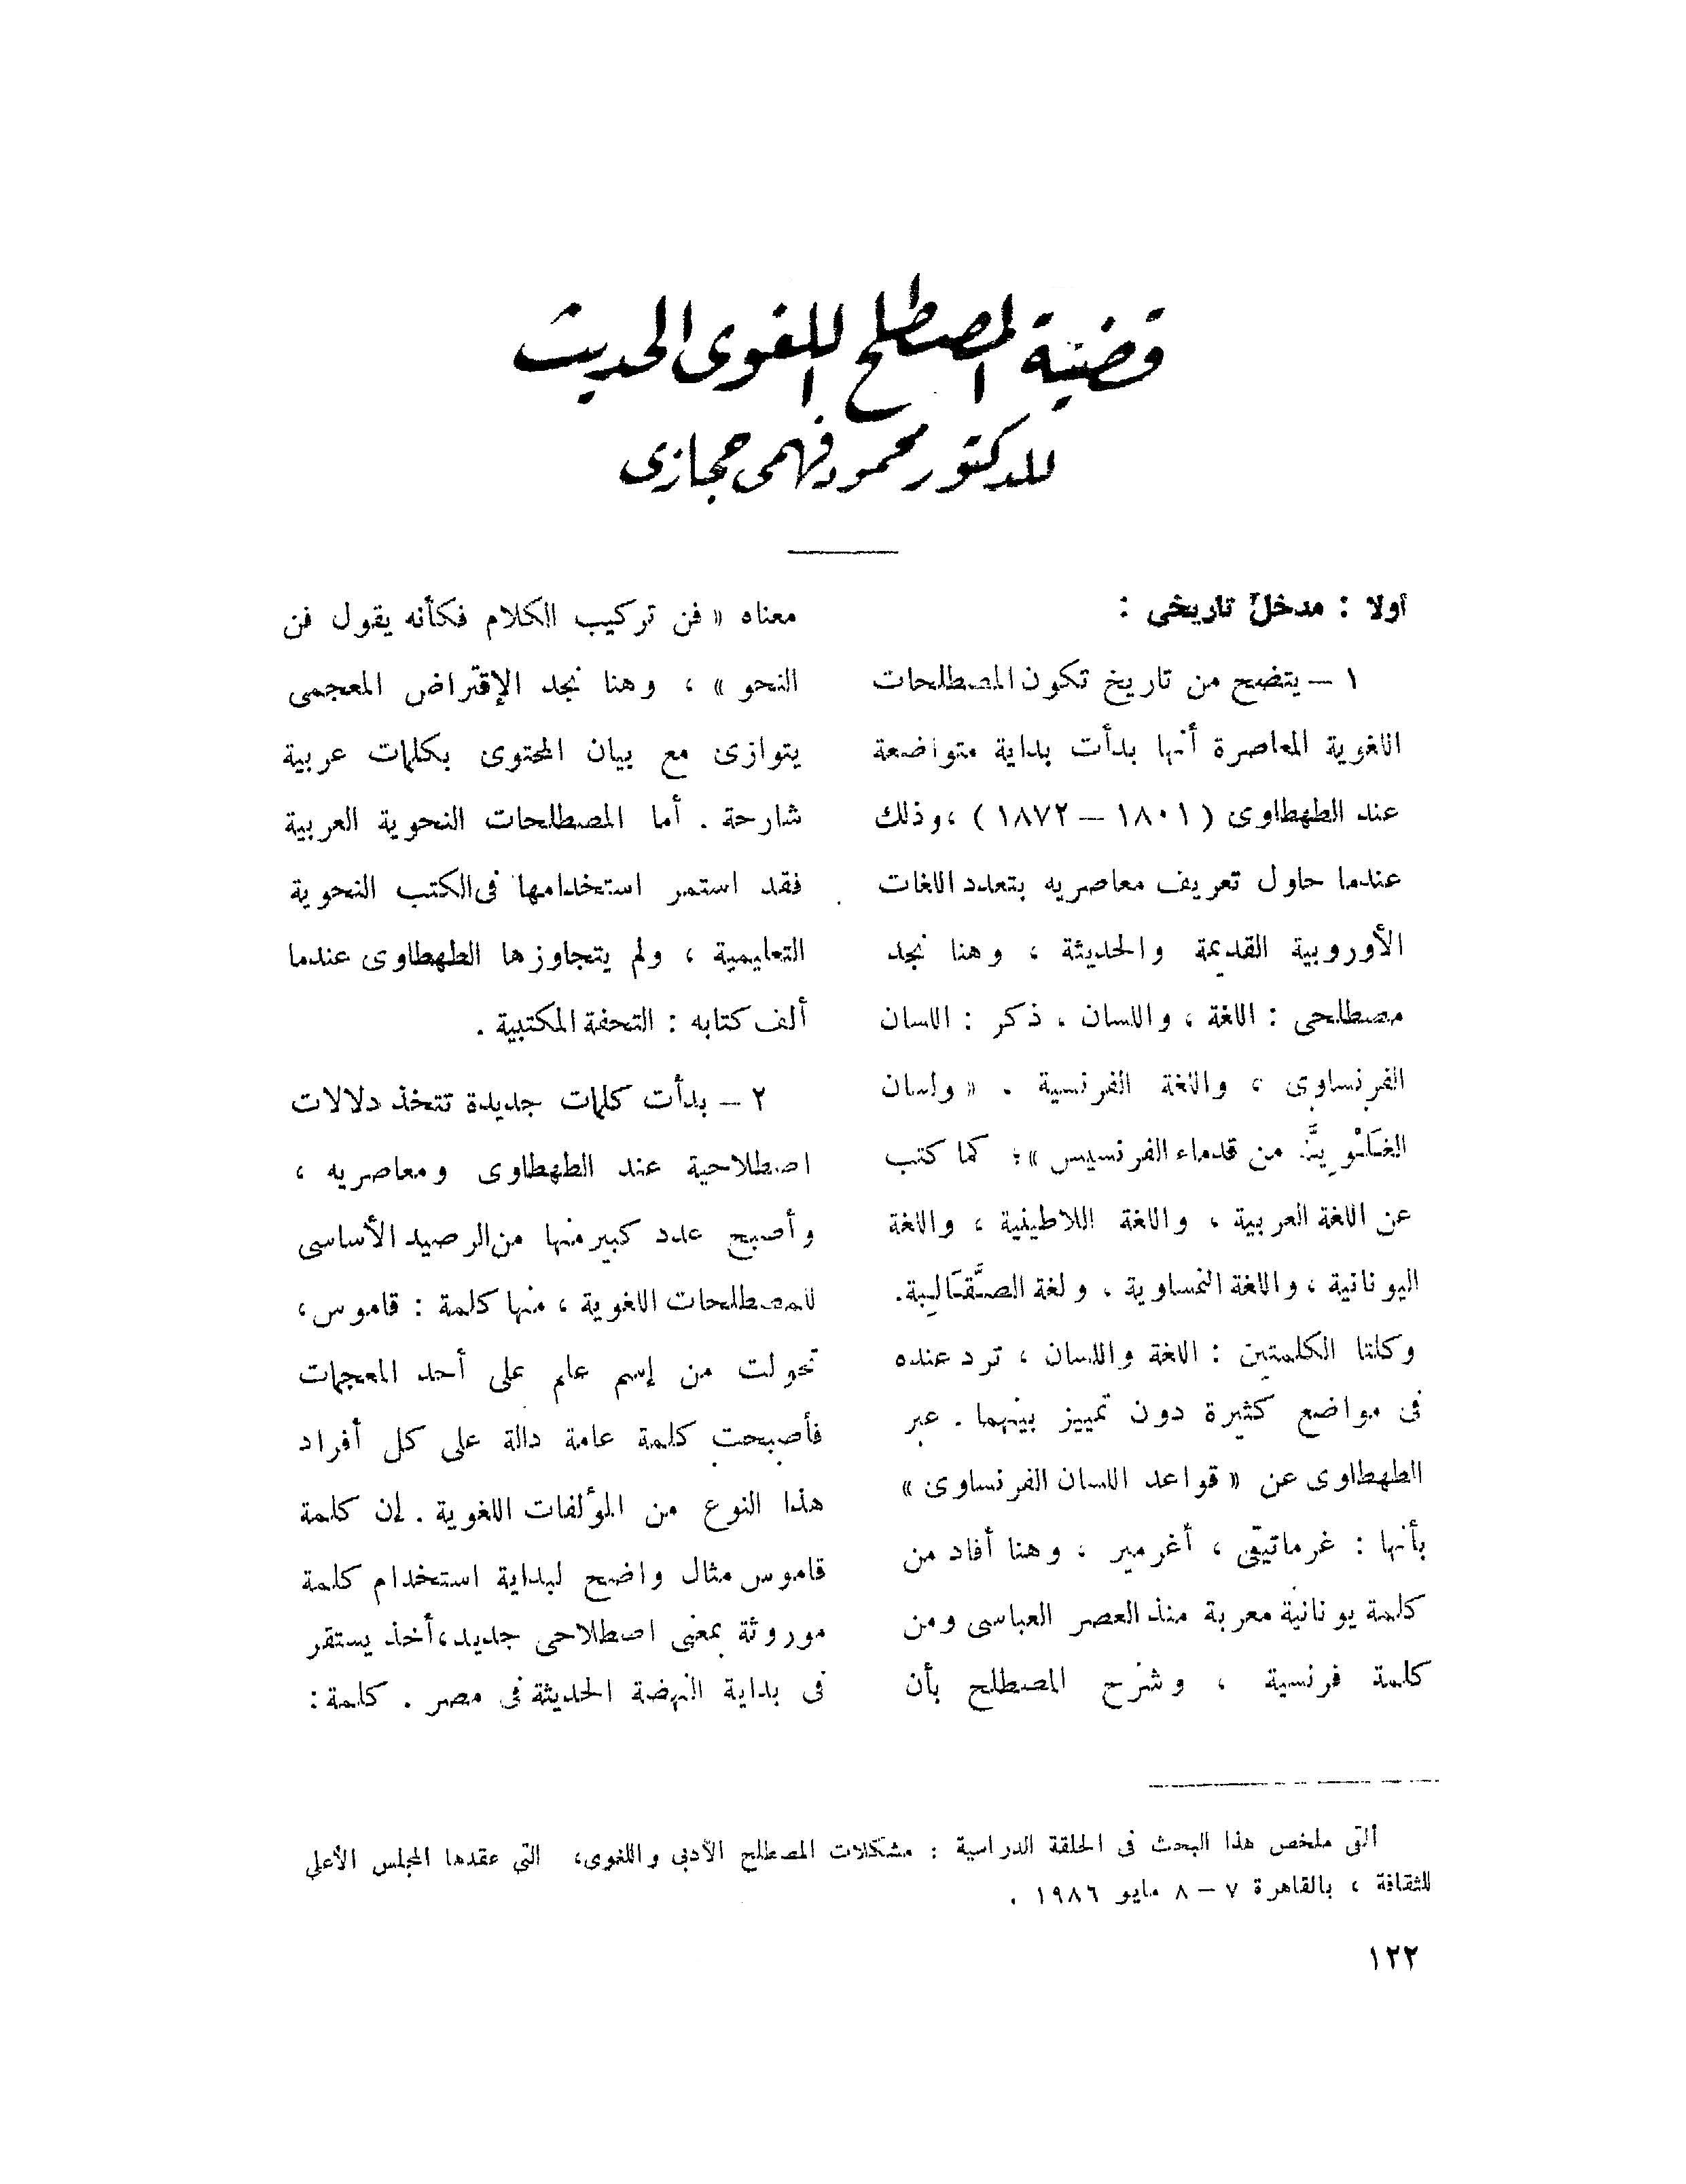 قضية المصطلح اللغوى الحديث
للدكتور محمود فهمى حجازى
أولا : مدخل تاريخى :
١ – يتضح من تاريخ تكون المصطلحات
اللغوية المعاصرة أنها بدأت بداية متواضعة
عند الطهطاوى ( ١٨٠١ – ١٨٧٢ ) ، وذلك
عندما حاول تعريف معاصريه بتعدد اللغات
الأوروبية القديمة والحديثة ، وهنا نجد
مصطلحى : اللغة ، واللسان . ذكر : اللسان
الفرنساوى ، واللغة الفرنسية . « ولسان
من قدماء الفرنسيس » ؛ كما كتب
عن اللغة العربية ، واللغة اللاطينية ، واللغة
اليونانية ، واللغة النمساوية . ولغة الصَّقَالِبة.
وكلتا الكلمتين : اللغة واللسان ، ترد عنده
فى مواضع كثيرة دون تمييز بينهما . عبر
الطهطاوى عن « قواعد اللسان الفرنساوى »
بأنها : غرماتيقى ، أغرمير ، وهنا أفاد من
كلمة يونانية معربة منذ العصر العباسى ومن
كلمة فرنسية ، وشرح المصطلح بأن
معناه « فن تركيب الكلام فكأنه يقول فن
النحو » ، وهنا نجد الإقتراض المعجمى
يتوازى مع بيان المحتوى بكلمات عربية
شارحة . أما المصطلحات النحوية العربية
فقد استمر استخدامها فى الكتب النحوية
التعليمية ، ولم يتجاوزها الطهطاوى عندما
ألف كتابه : التحفة المكتبية .
٢ – بدأت كلمات جديدة تتخذ دلالات
اصطلاحية عند الطهطاوى ومعاصريه ،
وأصبح عدد كبير منها من الرصيد الأساسى
للمصطلحات اللغوية ، منها كلمة : قاموس ،
تحولت من إسم علم على أحد المعجمات
فأصبحت كلمة عامة دالة على كل أفراد
هذا النوع من المؤلفات اللغوية . إن كلمة
قاموس مثال واضح لبداية استخدام كلمة
موروثة بمعنى اصطلاحى جديد ، أخذ يستقر
فى بداية النهضة الحديثة فى مصر . كلمة :
ألقى ملخص هذا البحث فى الحلقة الدراسية : مشكلات المصطلح الأدبى واللغوى، التي عقدها المجلس الأعلى
للثقافة ، بالقاهرة ٧ – ٨ مايو ١٩٨٦ .
١٢٢